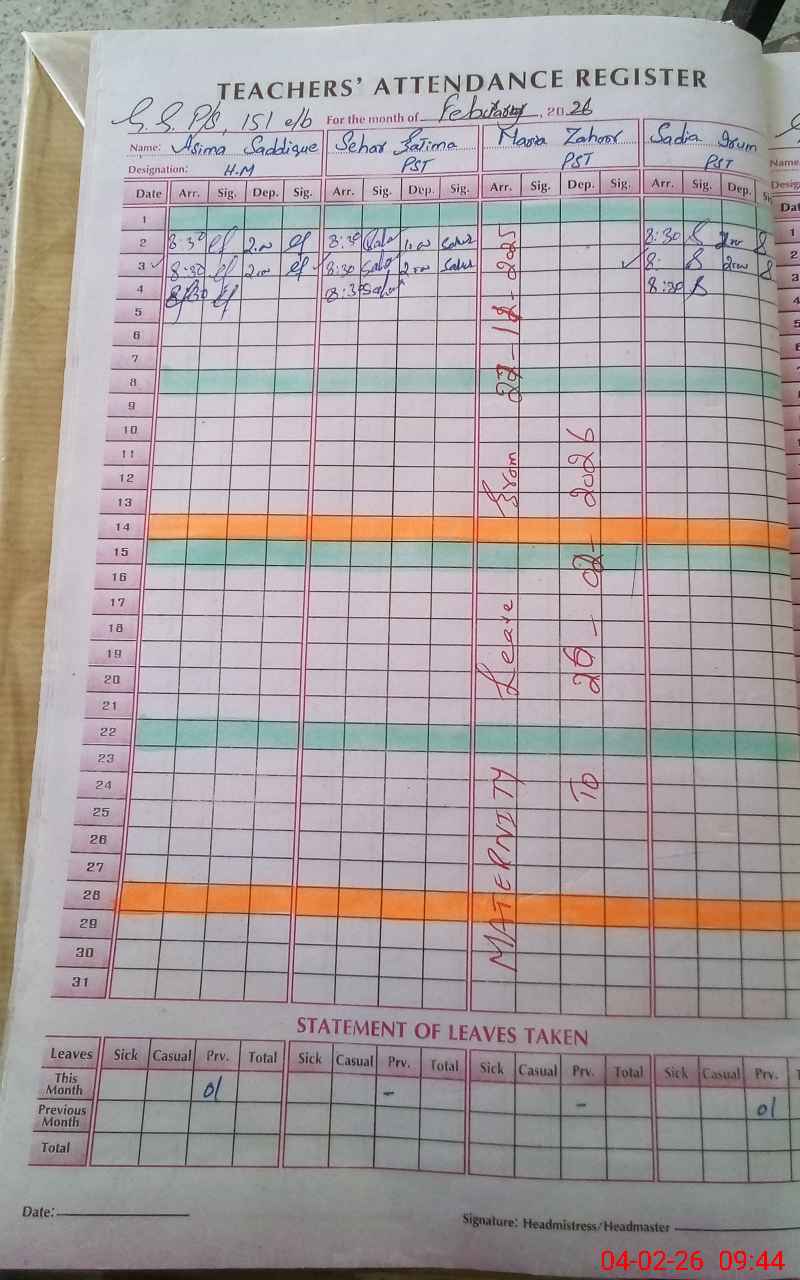 TEACHERS' ATTENDANCE REGISTER
G. G. P/S, 151 e/b For the month of February, 2026
Name: Asima Saddique Sehar Fatima Maria Zahoor Sadia Irum Name
Designation: H.M PST PST PST Desig
Date Arr. Sig. Dep. Sig. Arr. Sig. Dep. Sig. Arr. Sig. Dep. Sig. Arr. Sig. Dep. Sig
1
2 8:30 2.00 8:30 1.00 8:30 2.00
3 8:30 2.00 8:30 2.00 8: 2.00
4 8:30 8:30 8:30
5
6
7
8
9
10
11
12
13
14
15
16
17
18
19
20
21
22
23
24
25
26
27
28
29
30
31
MATERNITY Leave From 22-12-2025
To 26-02-2026
STATEMENT OF LEAVES TAKEN
Leaves Sick Casual Prv. Total Sick Casual Prv. Total Sick Casual Prv. Total Sick Casual Prv.
This Month 01 -
Previous Month - 01
Total
Date:
Signature: Headmistress/Headmaster
04-02-26 09:44